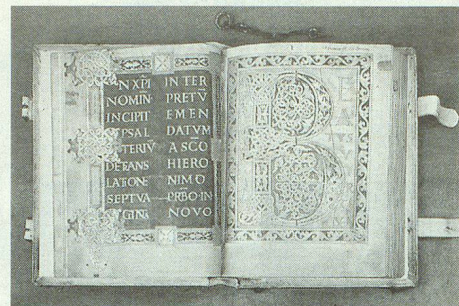 N XP̄I
NOMIN̄
INCIPIT
PSAL
TERIV̄
DETRANS
LATIONE
SEPTVA
GINT
IN TER
PRETV̄
EMEN
DATVM
A SC̄O
HIERO
NIMO
PRB̄O IN
NOVO
B
E
A